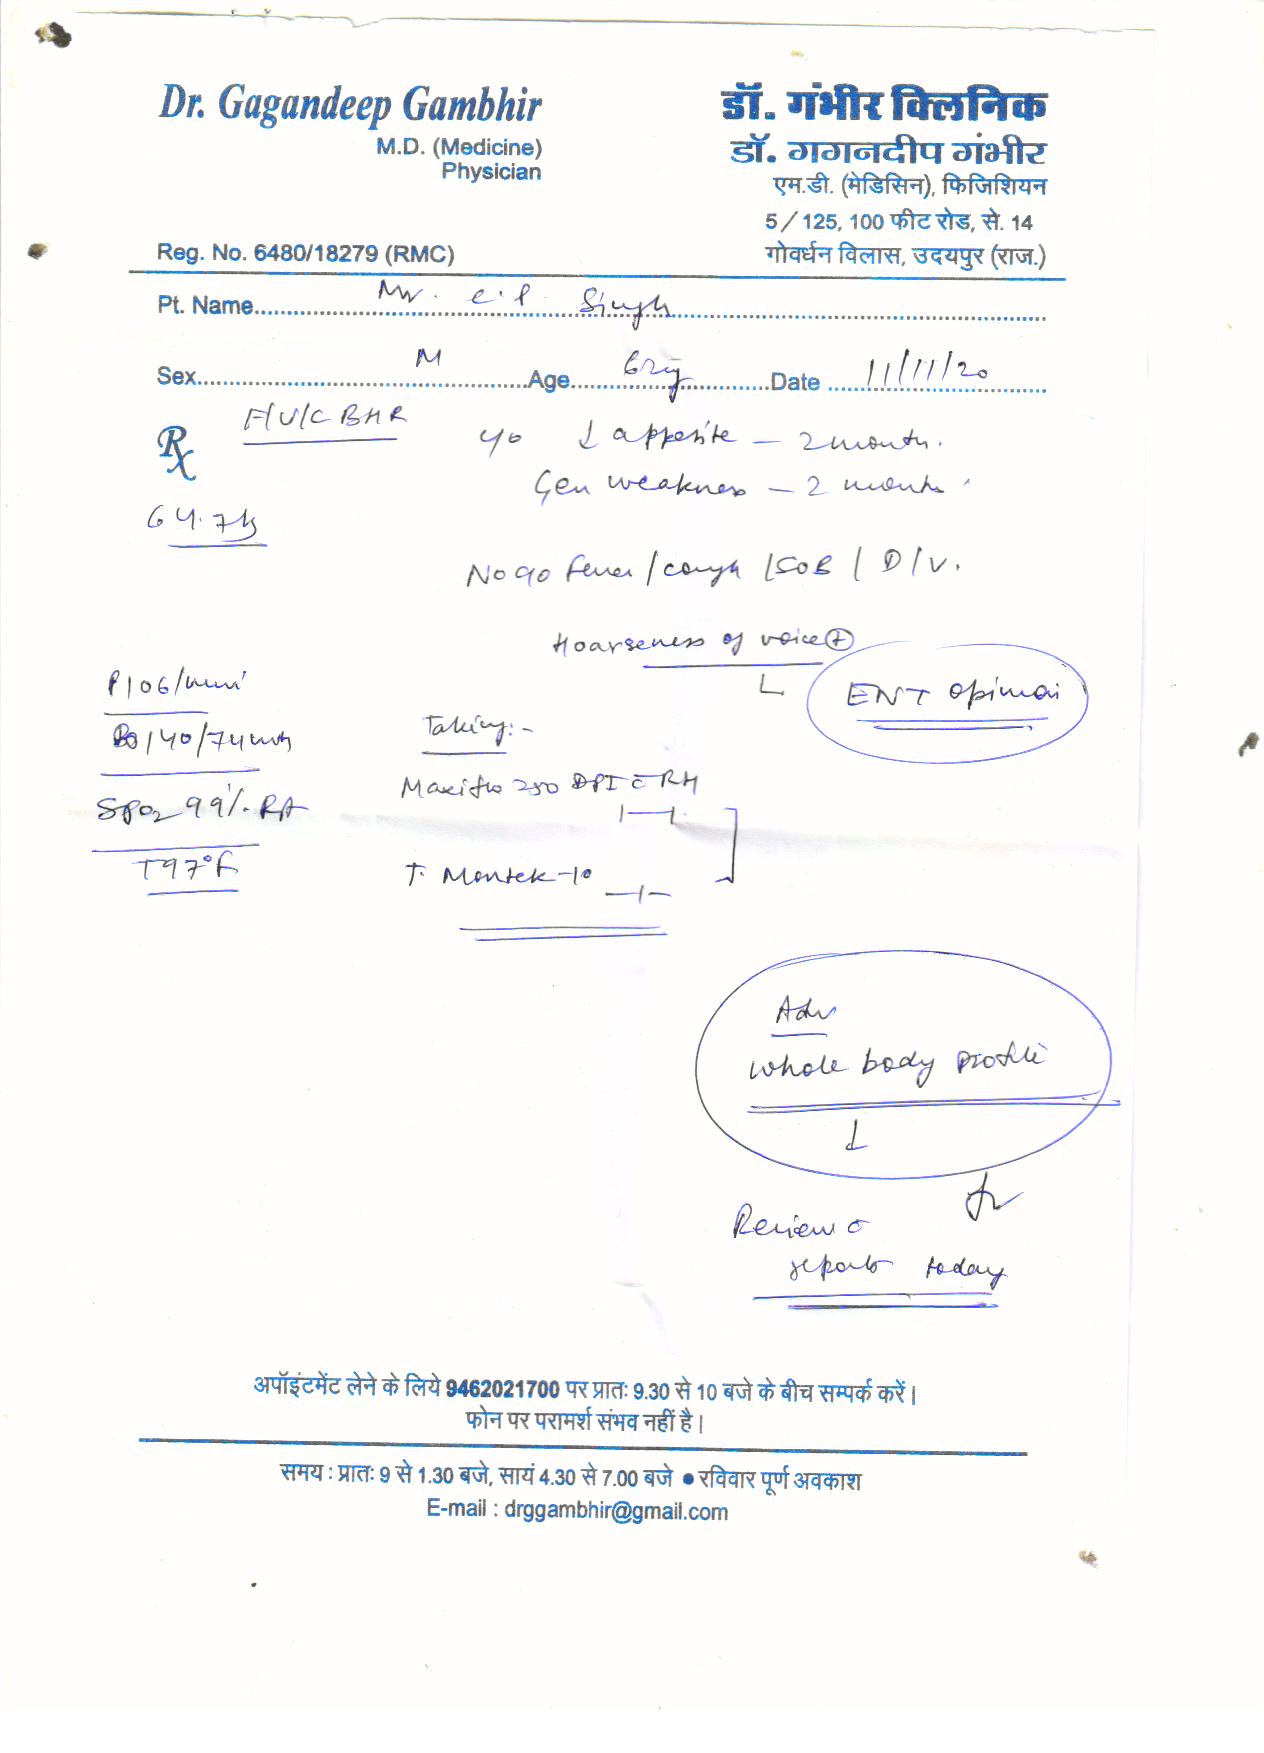 Dr. Gagandeep Gambhir
M.D. (Medicine)
Physician
Reg. No. 6480/18279 (RMC)
डॉ. गंभीर क्लिनिक
डॉ. गगनदीप गंभीर
एम.डी. (मेडिसिन), फिजिशियन
5/125, 100 फीट रोड, से. 14
गोवर्धन विलास, उदयपुर (राज.)
Pt. Name Mr. C.P. Singh
Sex M Age 62y Date 11/11/20
Rx F/U/C BHR
c/o ↓ appetite — 2 month.
Gen weakness — 2 month
64.7kg
No c/o fever / cough / SOB / D / V.
Hoarseness of voice ⊕
ENT opinion
P 106/min
BP 140/74
SpO2 99% RA
T 97°F
Taking:-
Maxiflo 250 DPI c RH
T. Montek-10
Adv
whole body profile
Review c
reports today
अपॉइंटमेंट लेने के लिये 9462021700 पर प्रातः 9.30 से 10 बजे के बीच सम्पर्क करें।
फोन पर परामर्श संभव नहीं है।
समय : प्रातः 9 से 1.30 बजे, सायं 4.30 से 7.00 बजे ● रविवार पूर्ण अवकाश
E-mail : drggambhir@gmail.com